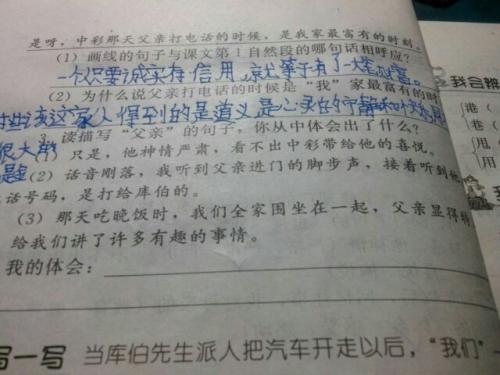 是呀，中彩那天父亲打电话的时候，是我家最富有的时刻。
(1) 画线的句子与课文第1自然段的哪句话相呼应？
一个人只要诚实有信用，就等于有了一大笔财富。
(2) 为什么说父亲打电话的时候是“我”家最富有的时
这家人得到的是道义是心灵的
3. 读描写“父亲”的句子，你从中体会出了什么？
只是，他神情严肃，看不出中彩带给他的喜悦。
(2) 话音刚落，我听到父亲进门的脚步声，接着听到他
话号码，是打给库伯的。
(3) 那天吃晚饭时，我们全家围坐在一起，父亲显得特
给我们讲了许多有趣的事情。
我的体会：
写一写 当库伯先生派人把汽车开走以后，“我们”
我会辨
港（
巷（
甩（
用（